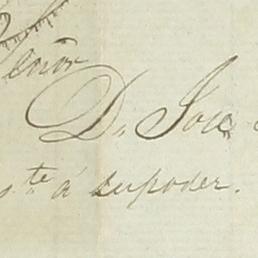 Señor
D. José
te á su poder.